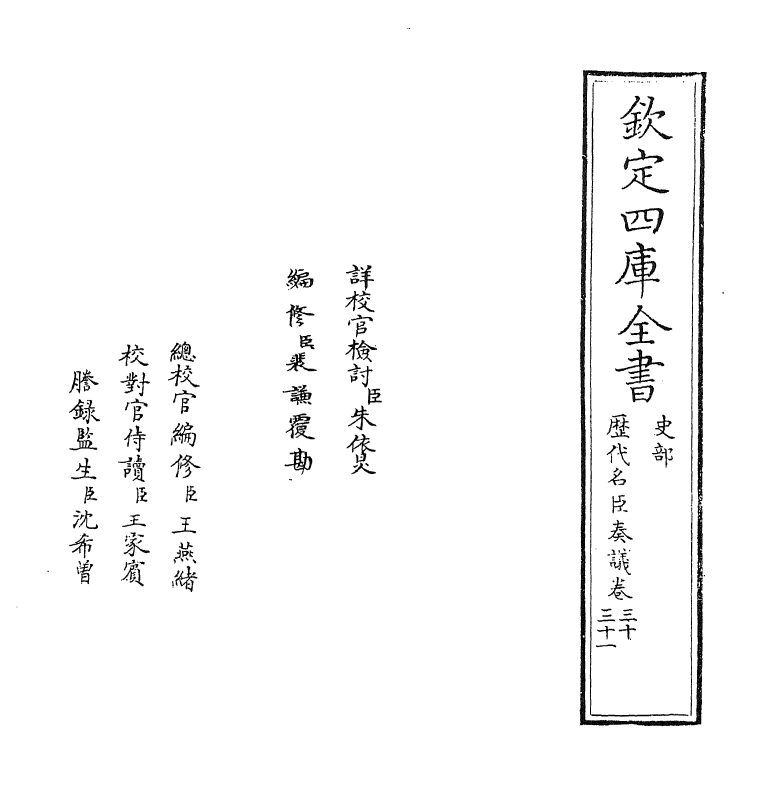 欽定四庫全書
史部
歷代名臣奏議卷三十
三十一
詳校官檢討臣朱依炅
編修臣裴謙覆勘
總校官編修臣王燕緒
校對官侍讀臣王家賓
謄錄監生臣沈希曾